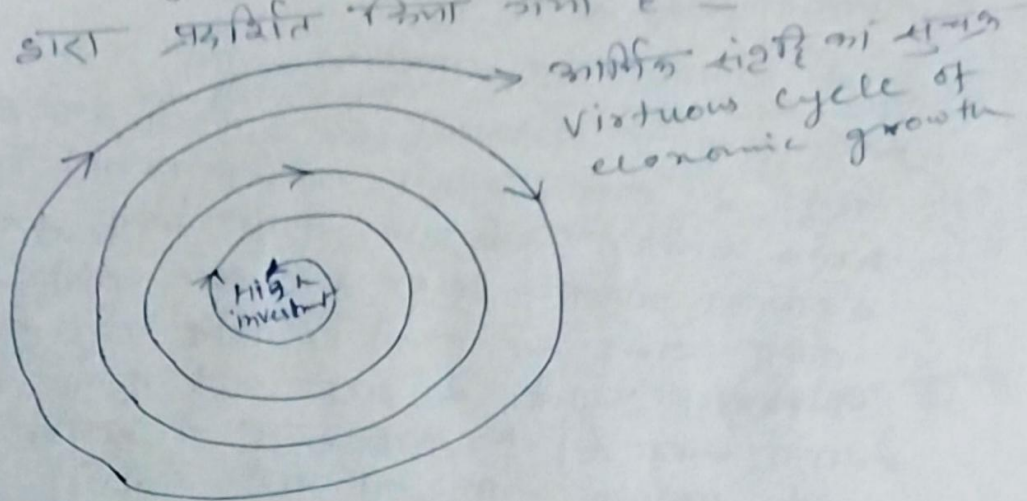 द्वारा प्रदर्शित किया गया है —
आर्थिक संवृद्धि का सुचक्र
virtuous cycle of
economic growth
High
investment